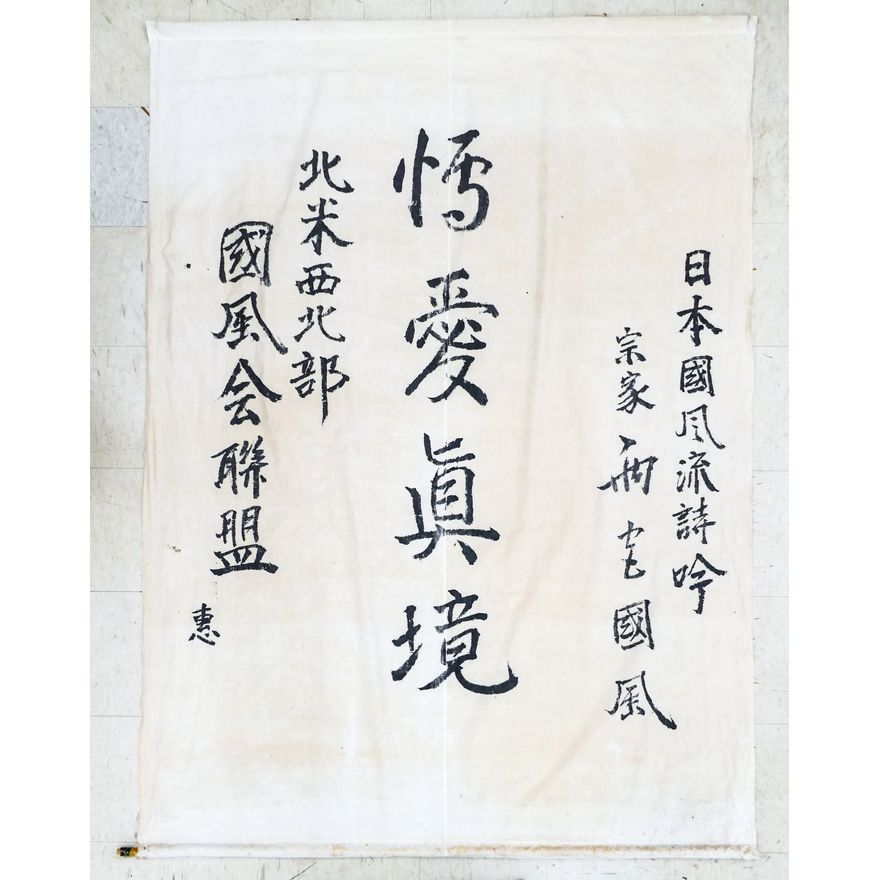 日本國風流詩吟
宗家 雨宮國風
愽愛眞境
北米西北部
國風会聯盟
惠